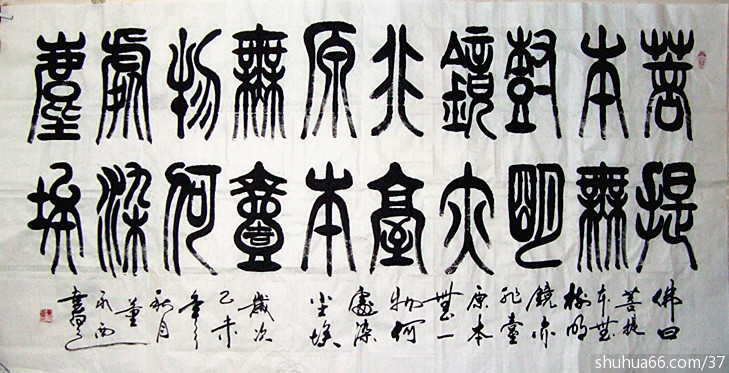 菩提
本無
樹明
鏡亦
非臺
原本
無壹
物何
處染
塵埃
佛曰
菩提
本無
樹明
鏡亦
非臺
原本
無一
物何
處染
尘埃
歲次
己未
年之
秋月
董
永西
書
shuhua66.com/37